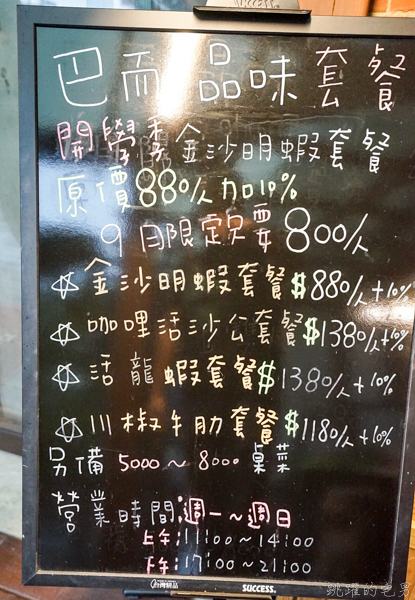 SUCCESS.
巴而品味套餐
開學季金沙明蝦套餐
原價880/人加10%
9月限定只要800/人
☆金沙明蝦套餐$880/人+10%
☆咖哩活沙公套餐$1380/人+10%
☆活龍蝦套餐$1380/人+10%
☆川椒牛肋套餐$1180/人+10%
另備 5000~8000 桌菜
營業時間:週一~週日
上午:11:00~14:00
下午:17:00~21:00
台灣精品
SUCCESS.
跳躍的宅男